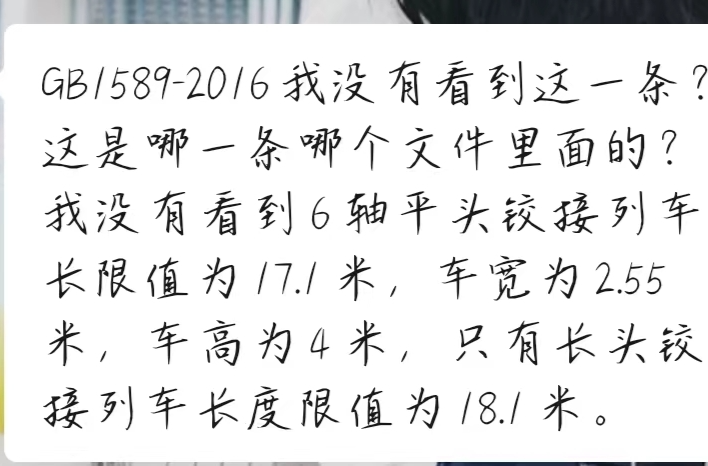 GB1589-2016我没有看到这一条？
这是哪一条哪个文件里面的？
我没有看到6轴平头铰接列车
长限值为17.1米，车宽为2.55
米，车高为4米，只有长头铰
接列车长度限值为18.1米。